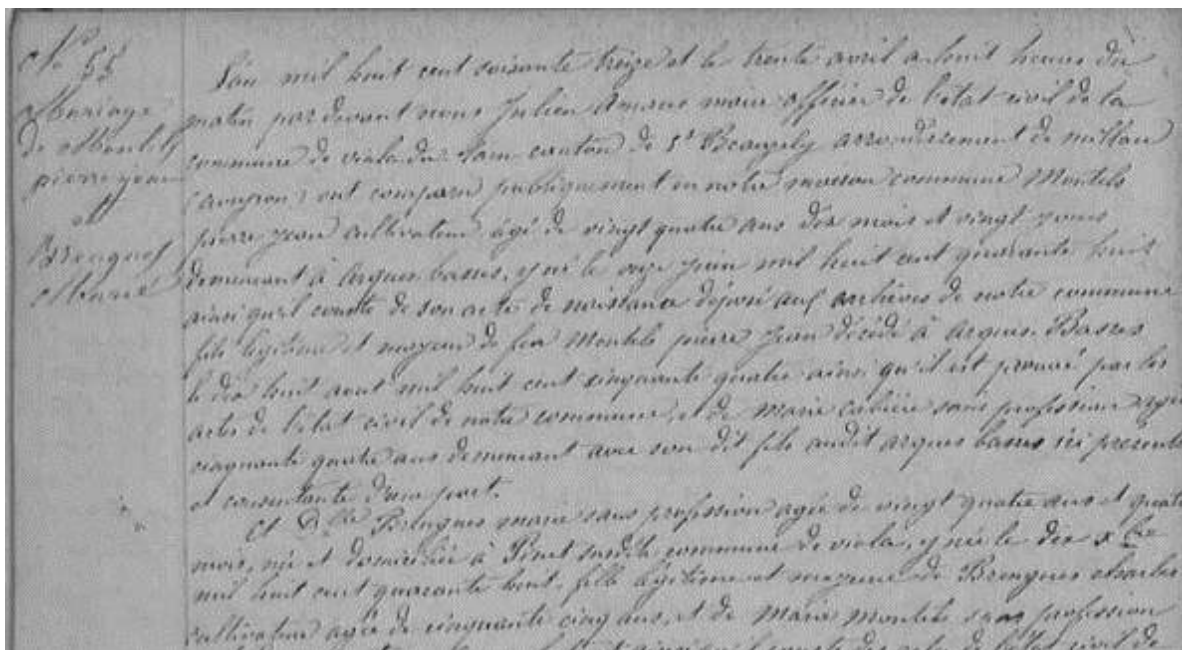 N° 55
Mariage
de Montels
pierre jean
et
Brengues
Marie
L'an mil huit cent soixante treize et le trente avril a huit heures du
matin par devant nous Julien Amans maire officier de l'état civil de la
commune de viala du Tarn canton de St Beauzely arrondissement de millau
(aveyron) ont comparu publiquement en notre maison commune Montels
pierre jean cultivateur âgé de vingt quatre ans dix mois et vingt jours
demeurant à Arques basses, y né le onze juin mil huit cent quarante huit
ainsi qu'il conste de son acte de naissance déposé aux archives de notre commune
fils légitime et majeur de feu Montels pierre Jean décédé à Arques Basses
le dix huit aout mil huit cent cinquante quatre ainsi qu'il est prouvé par les
actes de l'état civil de notre commune, et de Marie cabière sans profession agée
cinquante quatre ans demeurant avec son dit fils audit arques basses ici presente
et consentante d'une part.
Et Dlle Brengues marie sans profession agée de vingt quatre ans et quatre
mois, née et domiciliée à Pinet commune de viala, y née le dix xbre
mil huit cent quarante huit, fille légitime et majeure de Brengues charles
cultivateur agée de cinquante cinq ans, et de Marie montels sans profession
ainsi qu'il conste des actes de l'état civil de